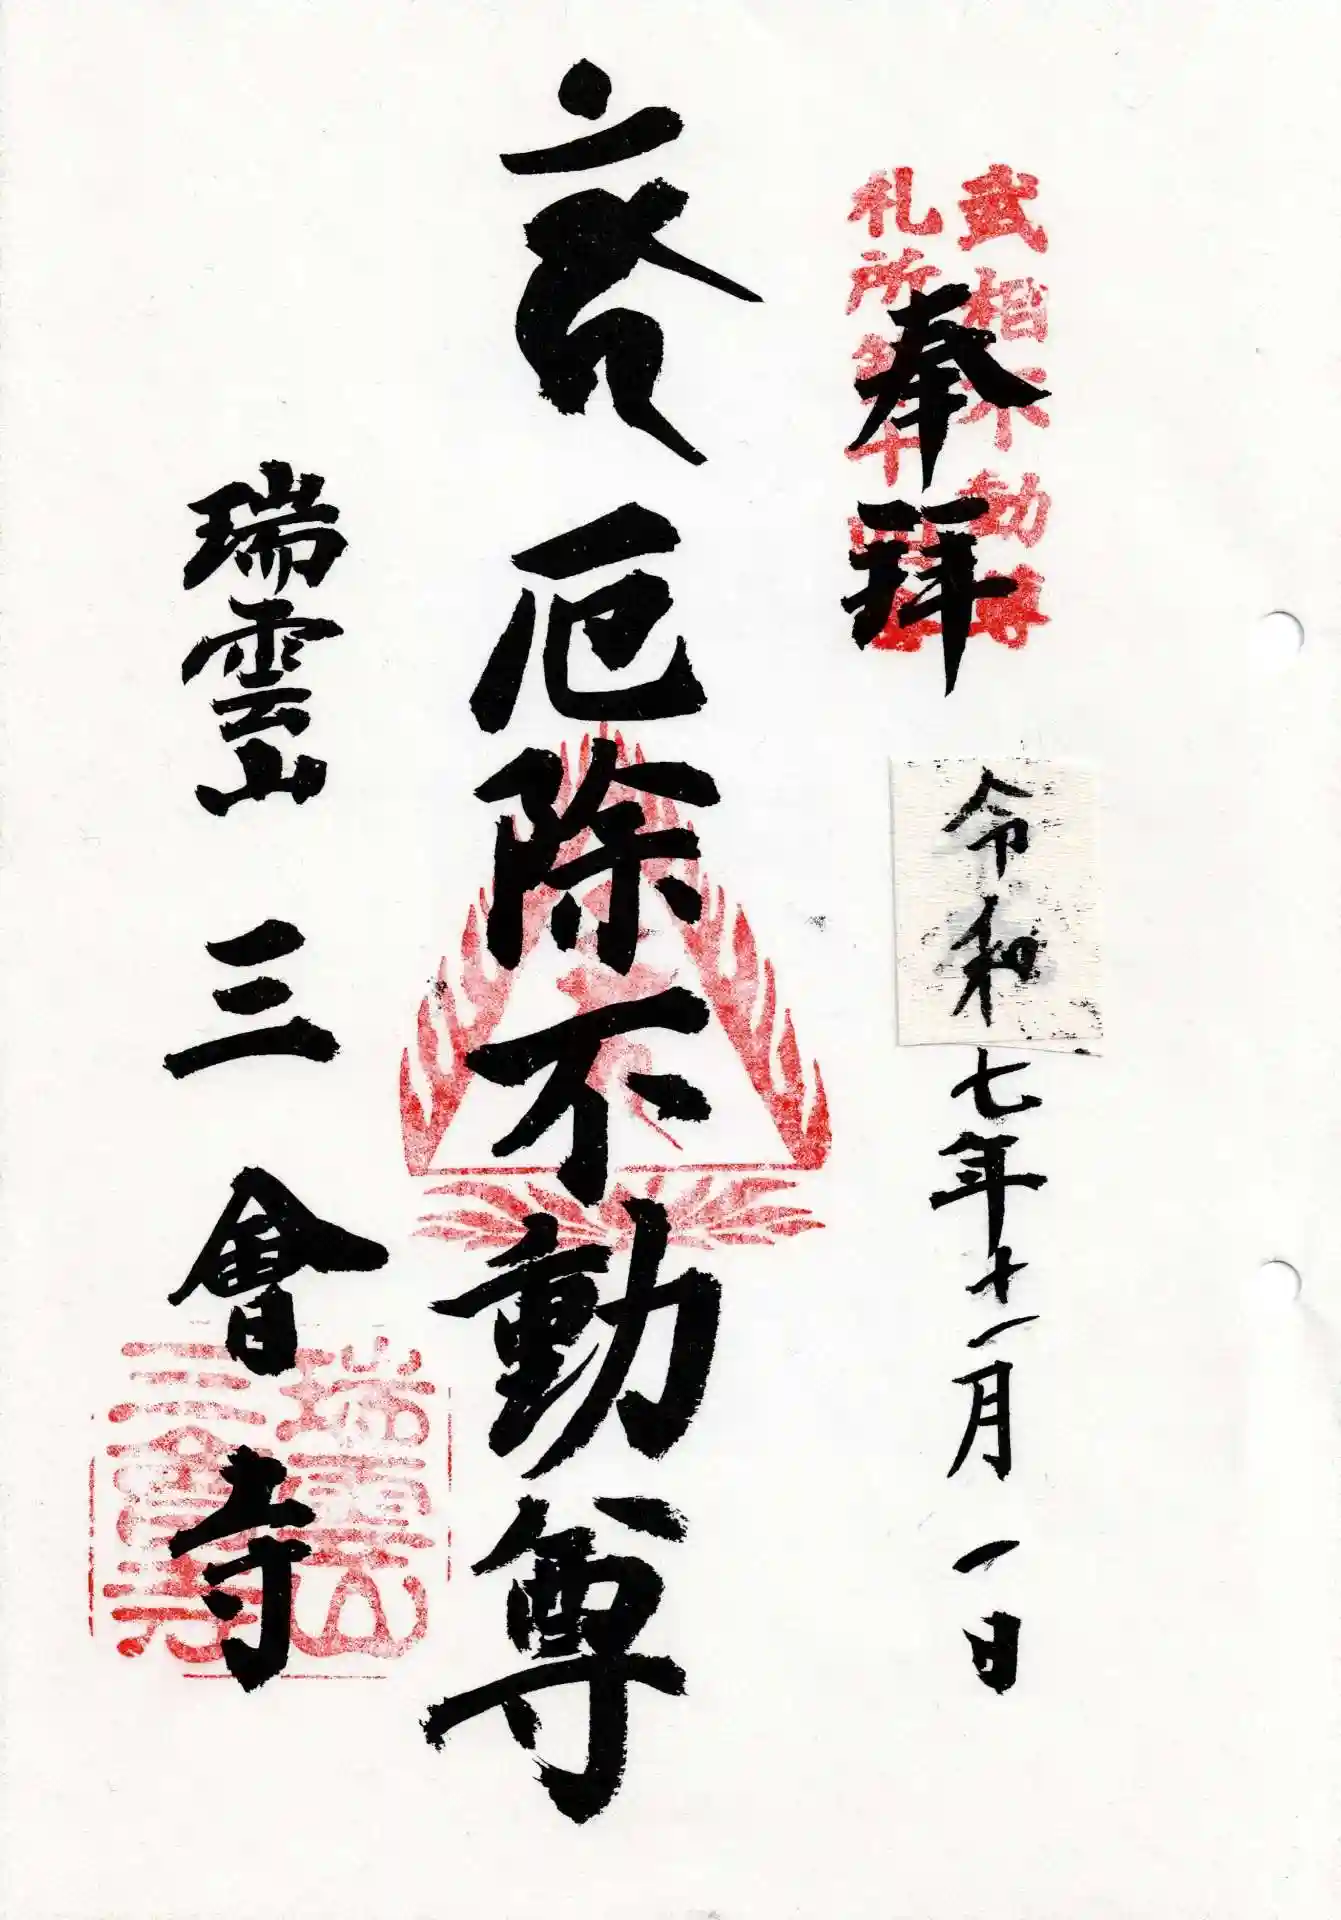 武相不動尊
札所第十四番
奉拝
令和七年十一月一日
厄除不動尊
瑞雲山 三會寺
瑞雲山
三會寺